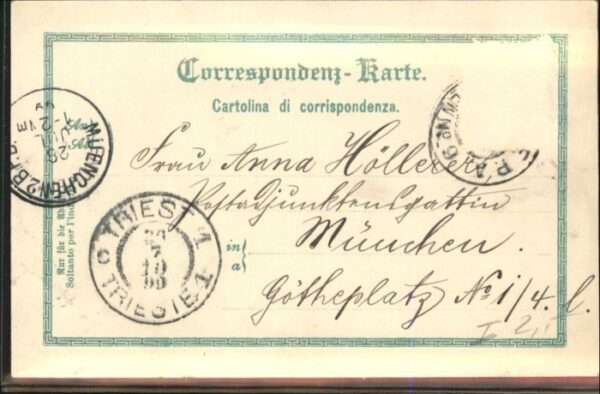 Correspondenz-Karte.
Cartolina di corrispondenza.
MUENCHEN 2 B.
26
JUL
1-2
99
Frau Anna Höllerer
Postadjunktensgattin
in
a
München.
Götheplatz No 1/4. l.
TRIEST 1
TRIESTE 1
7
10
99
Nur für die
Soltanto per l'ind